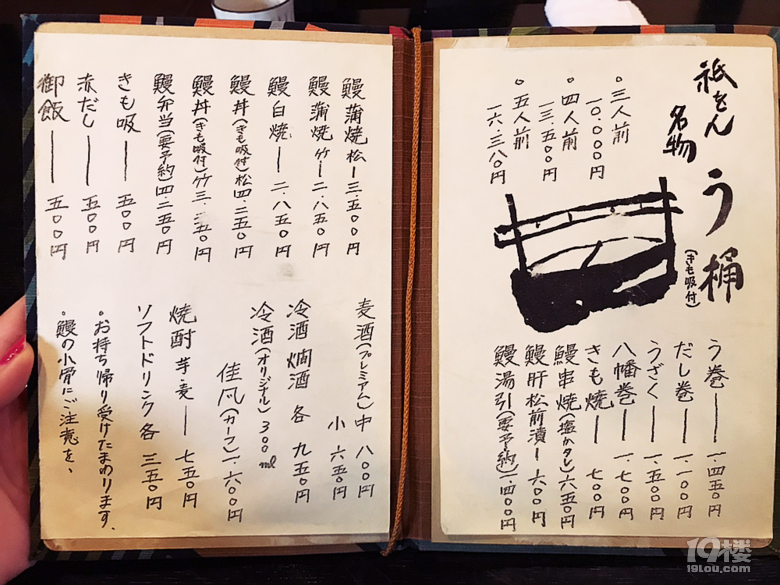 祇をん
名物
う桶
(きも吸付)
・三人前
一〇.〇〇〇円
・四人前
一三.五〇〇円
・五人前
一六.三八〇円
う巻 一.四五〇円
だし巻 一.一〇〇円
うざく 一.五〇〇円
八幡巻 一.七〇〇円
きも焼 七〇〇円
鰻串焼(塩かタレ)六五〇円
鰻肝松前漬 六〇〇円
鰻湯引(要予約)一.四〇〇円
鰻蒲焼 松 三五〇〇円
鰻蒲焼 竹 二.八五〇円
鰻白焼 二.八五〇円
鰻丼(きも吸付)松 四.二五〇円
鰻丼(きも吸付)竹 三.二五〇円
鰻弁当(要予約)四.二五〇円
きも吸 五〇〇円
赤だし 五〇〇円
御飯 五〇〇円
麦酒(プレミアム)中 八〇〇円
小 六五〇円
冷酒 燗酒 各 九五〇円
冷酒(オリジナル)300ml
佳凡(カーフ)一.六〇〇円
焼酎 芋・麦 七五〇円
ソフトドリンク 各 三五〇円
・お持ち帰り受けたまわります.
・鰻の小骨にご注意を、
19楼
19lou.com